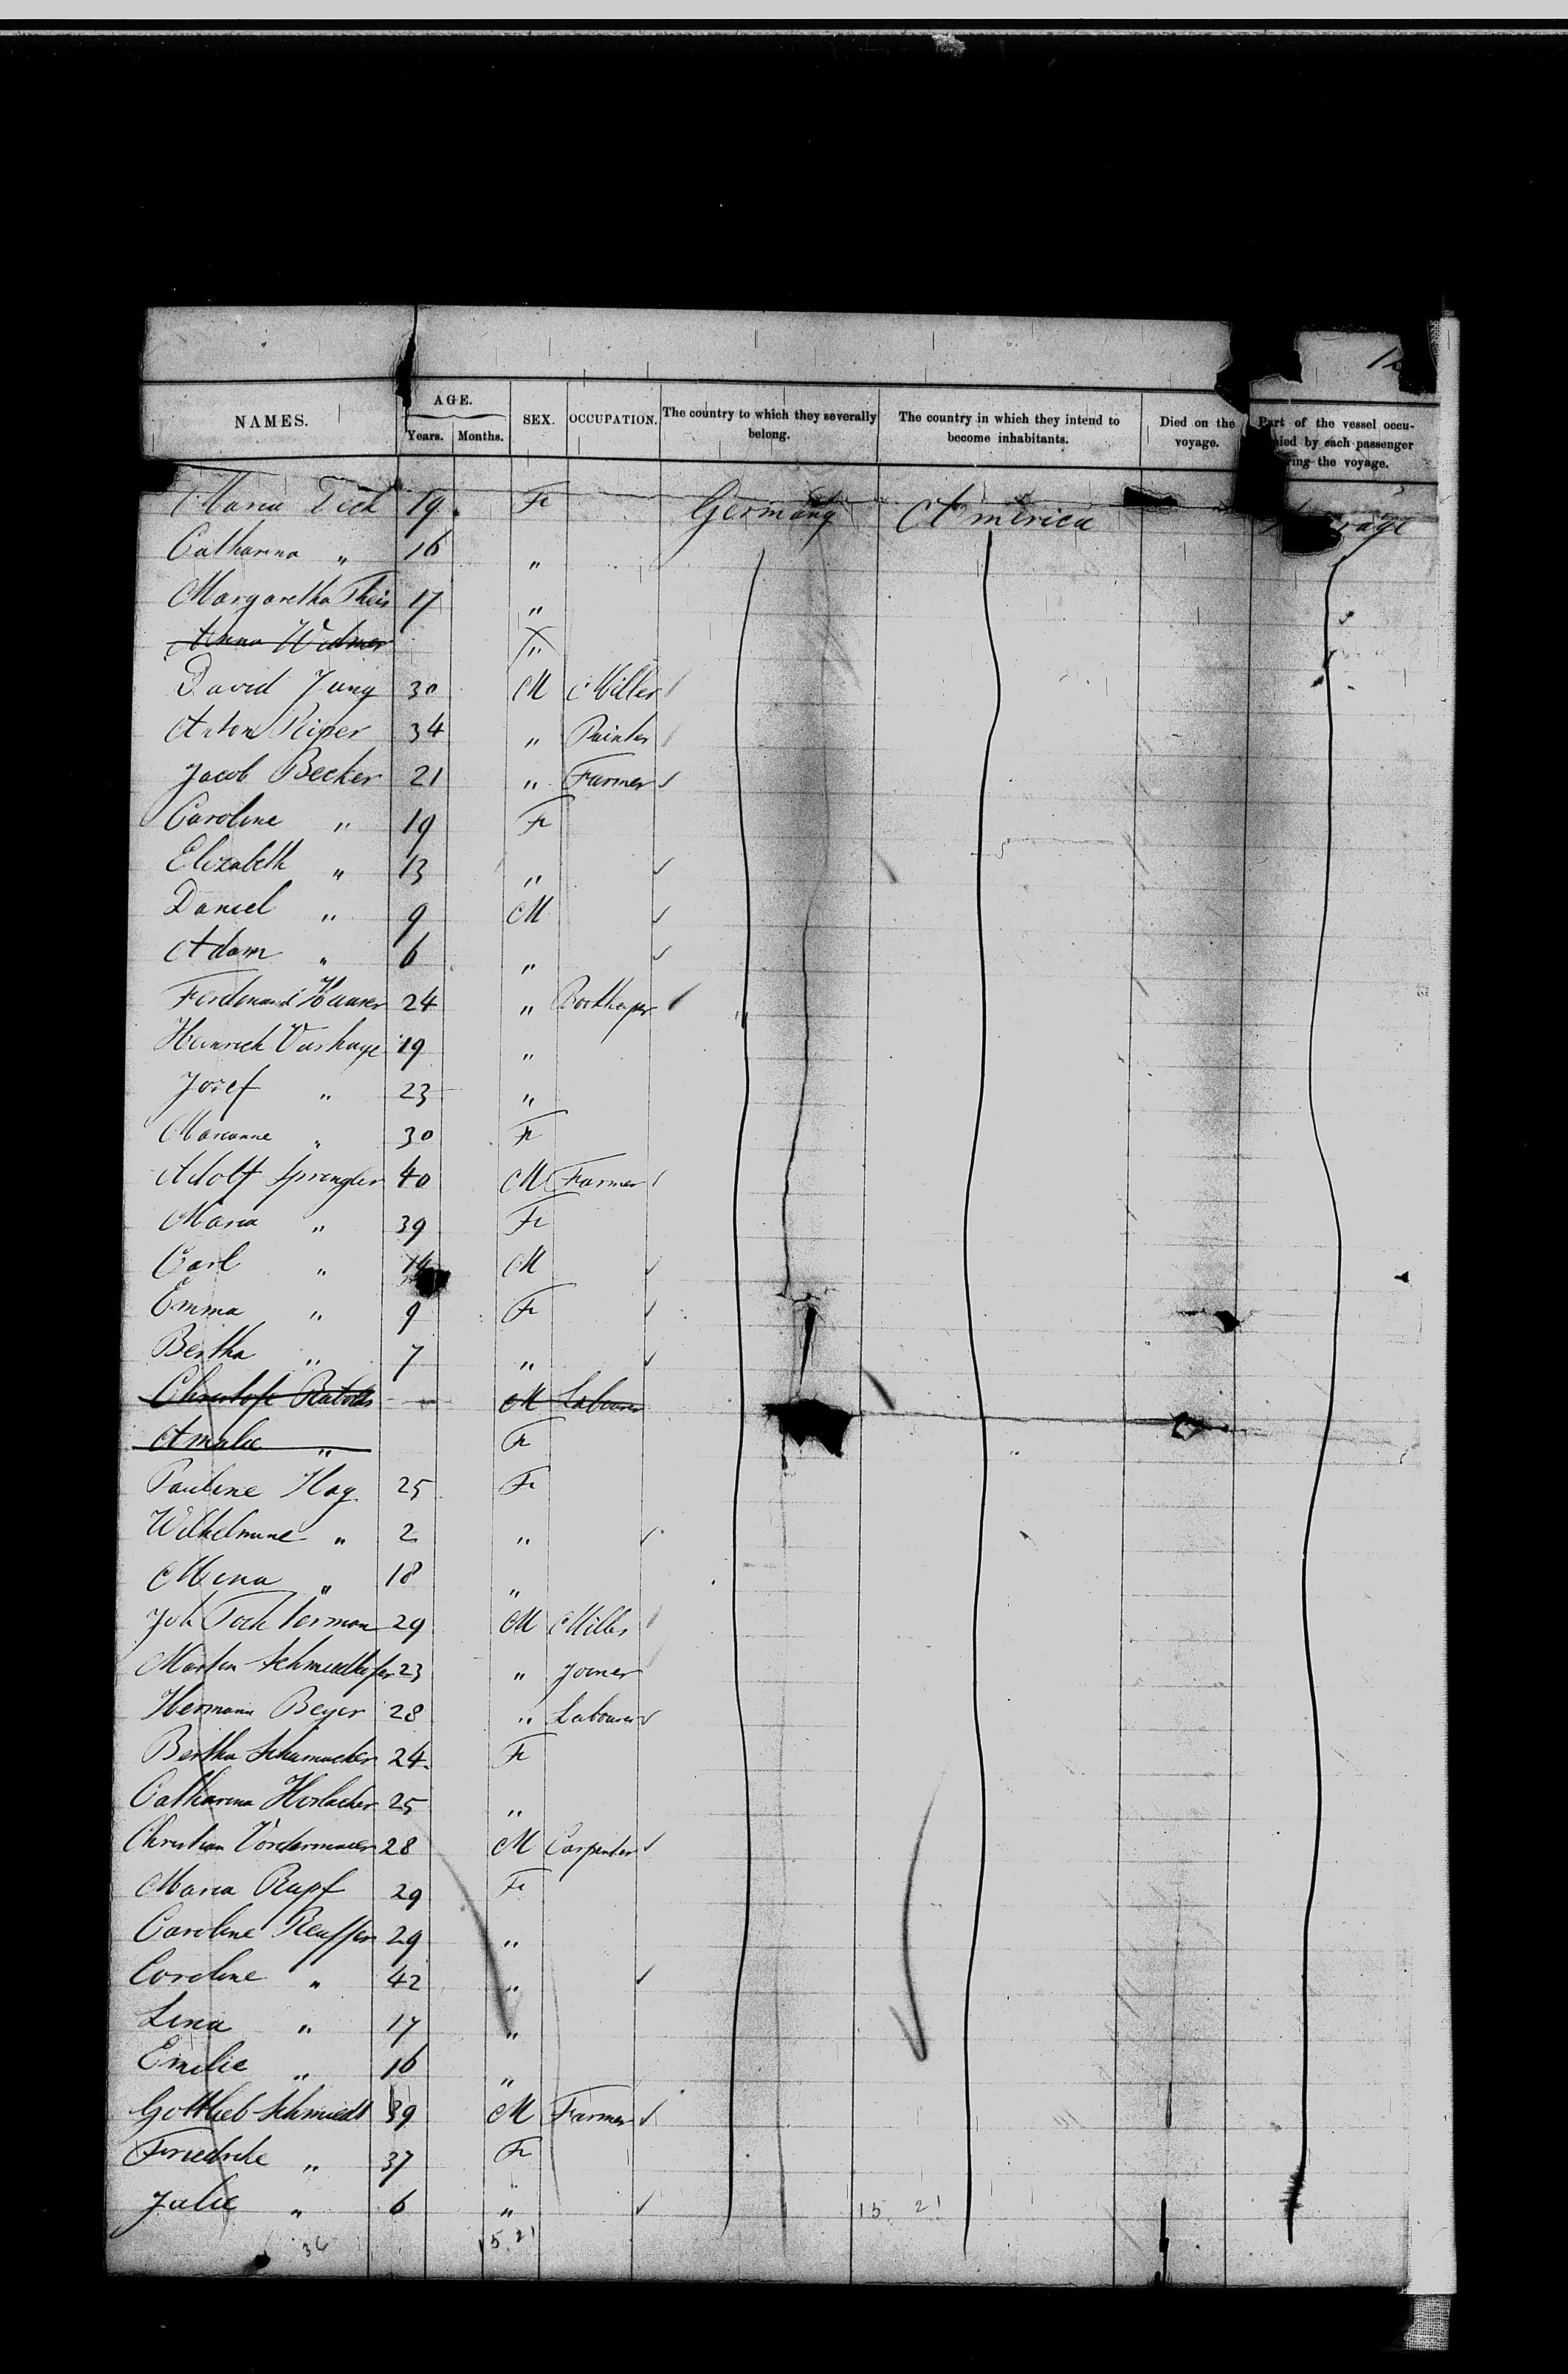 NAMES. AGE. Years. Months. SEX. OCCUPATION. The country to which they severally belong. The country in which they intend to become inhabitants. Died on the voyage. Part of the vessel occupied by each passenger during the voyage.
Maria Deck 19 Fe Germany America
Catharina " 16 "
Margaretha Theis 17 "
Anna Widmer "
David Jung 30 M Miller
Anton Kiper 34 " Painter
Jacob Becker 21 " Farmer
Caroline " 19 Fe
Elizabeth " 13 "
Daniel " 9 M
Adam " 6 "
Ferdinand 24 " Bookkeper
Heinrich Varhage 19 "
Josef " 23 "
Marianne " 30 Fe
Adolf Sprengler 40 M Farmer
Maria " 39 Fe
Carl " 14 M
Emma " 9 Fe
Bertha " 7 "
Christof M Labourer
Amalie " Fe
Pauline Hag 25 Fe
Wilhelmine " 2 "
Mina " 18 "
Joh 29 M Miller
Martin Schmiedhofer 23 " Joiner
Hermann Beyer 28 " Labourer
Bertha Schumacher 24 Fe
Catharina Horlacher 25 "
Christian Vordermaier 28 M Carpenter
Maria Rupf 29 Fe
Caroline Reuffer 29 "
Caroline " 42 "
Lina " 17 "
Emilie " 16 "
Gottlieb Schmiedt 39 M Farmer
Friedrike " 37 Fe
Julie " 6 " 15 21
36 15.21